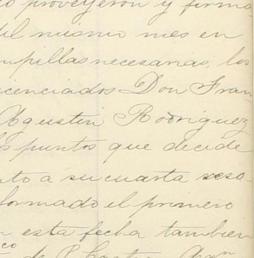 proveyeron y firma
til mismo mes en
upillas necesarias, los
icenciados Don Fran
Agustin Rodriguez
s puntos que decide
to a su cuarta reso
formado el primero
n esta fecha tambien
co de P. Castro Agn